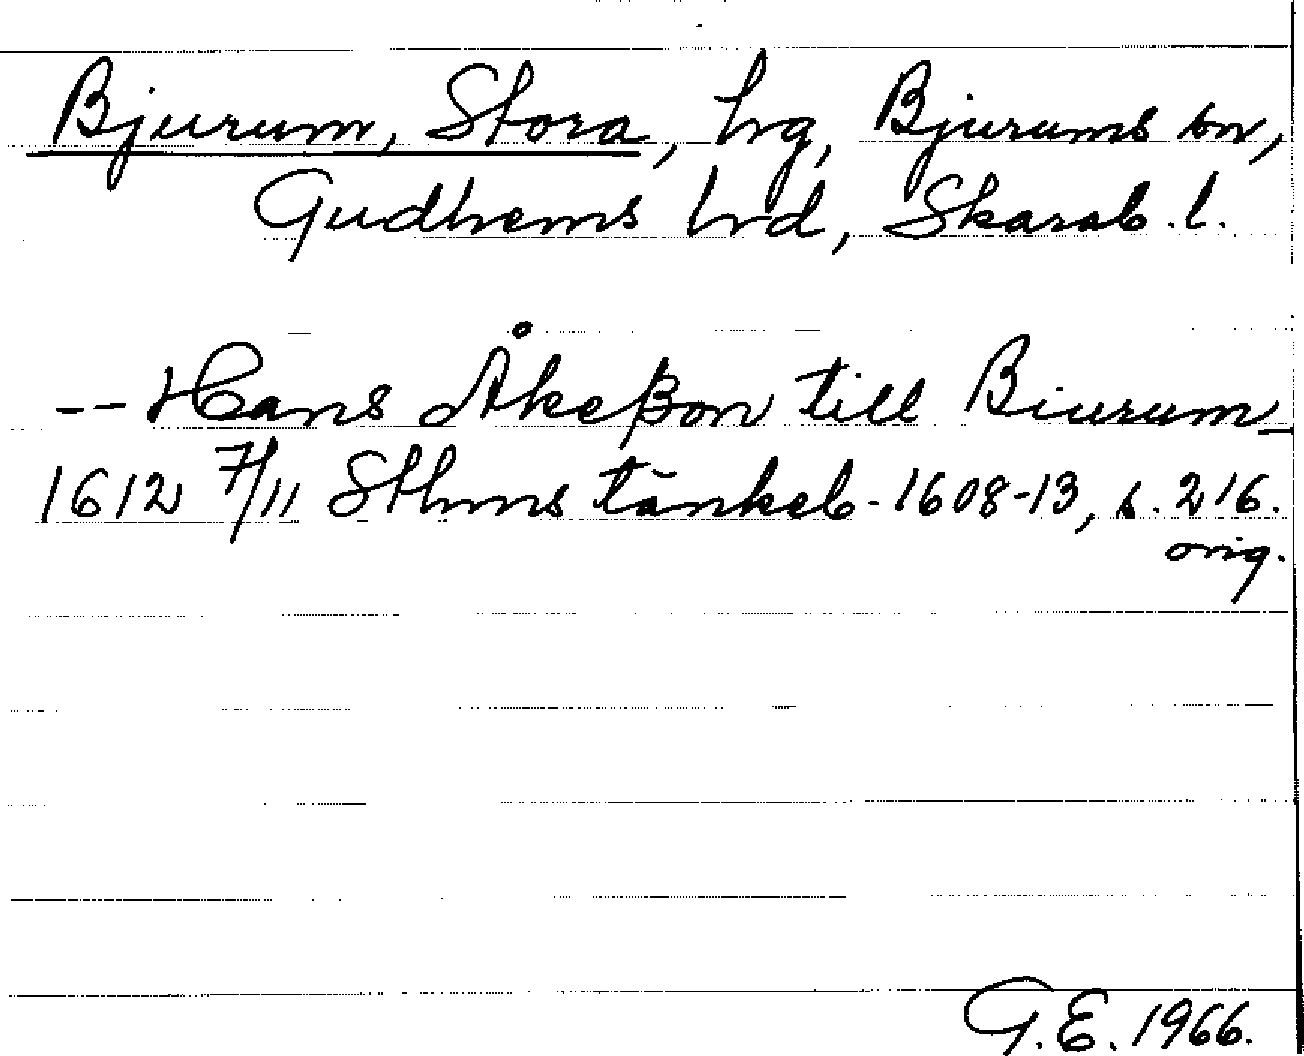 Bjurum, Stora, hg, Bjurums sn,
Gudhems hd, Skarab. l.
-- Hans Åkeßon till Biurum_
1612 7/11 Sthms tänkeb. 1608-13, s. 216.
orig.
G.E. 1966.